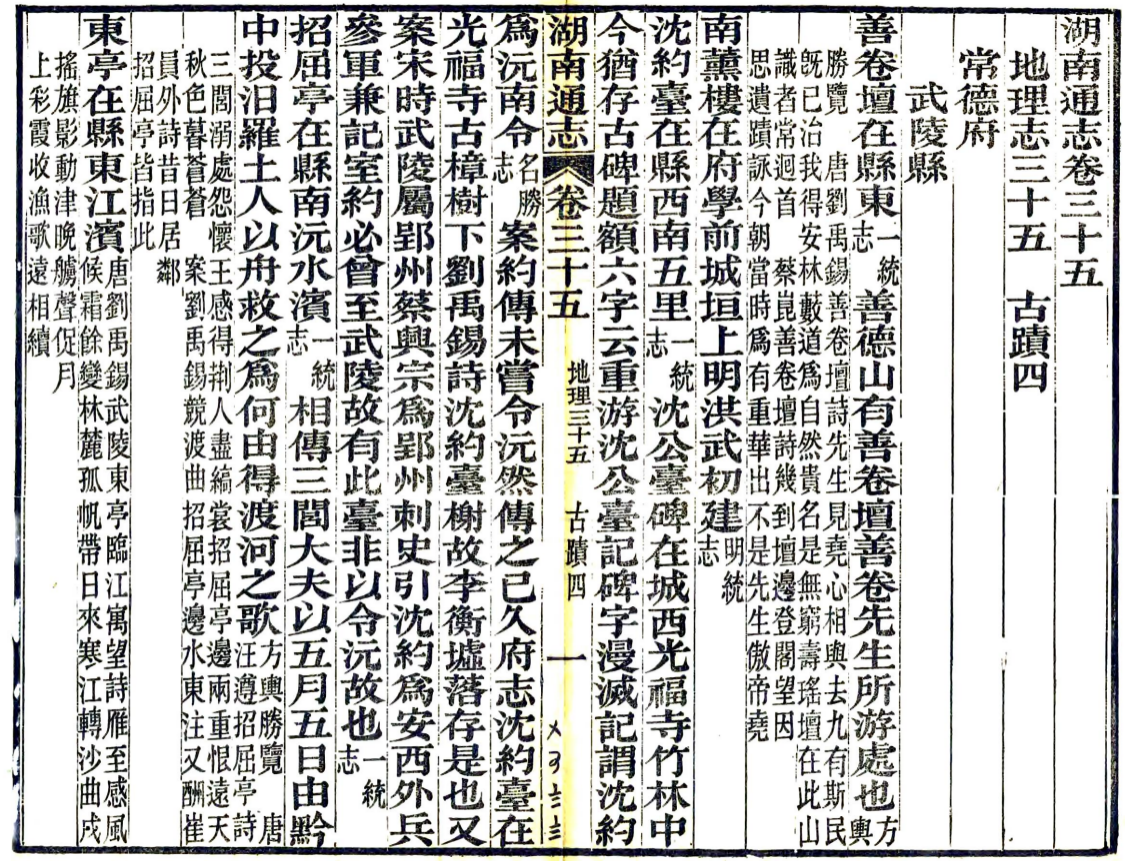 湖南通志卷三十五
地理志三十五　古蹟四
常德府
武陵縣
善卷壇在縣東一統志善德山有善卷壇善卷先生所游處也方輿
勝覽　唐劉禹錫善卷壇詩先生見堯心相與去九有斯民
旣已治我得安林藪道爲自然貴名是無窮壽瑤壇在此山
識者常迴首　蔡崑善卷壇詩幾到壇邊登閣望因
思遺蹟詠今朝當時爲有重華出不是先生傲帝堯
南薰樓在府學前城垣上明洪武初建明統志
沈約臺在縣西南五里一統志沈公臺碑在城西光福寺竹林中
今猶存古碑題額六字云重游沈公臺記碑字漫滅記謂沈約
湖南通志　卷三十五　地理三十五　古蹟四　一
爲沅南令名勝志案約傳未嘗令沅然傳之已久府志沈約臺在
光福寺古樟樹下劉禹錫詩沈約臺榭故李衡墟落存是也又
案宋時武陵屬郢州蔡興宗爲郢州刺史引沈約爲安西外兵
參軍兼記室約必曾至武陵故有此臺非以令沅故也一統志
招屈亭在縣南沅水濱一統志相傳三閭大夫以五月五日由黔
中投汨羅土人以舟救之爲何由得渡河之歌方輿勝覽　唐汪遵招屈亭詩
三閭溺處怨懷王感得荆人盡縞裳招屈亭邊兩重恨遠天
秋色暮蒼蒼　案劉禹錫競渡曲招屈亭邊水東注又酬崔
員外詩昔日居鄰
招屈亭皆指此
東亭在縣東江濱唐劉禹錫武陵東亭臨江寓望詩雁至感風
候霜餘變林麓孤帆帶日來寒江轉沙曲戍
搖旗影動津晚艣聲促月
上彩霞收漁歌遠相續